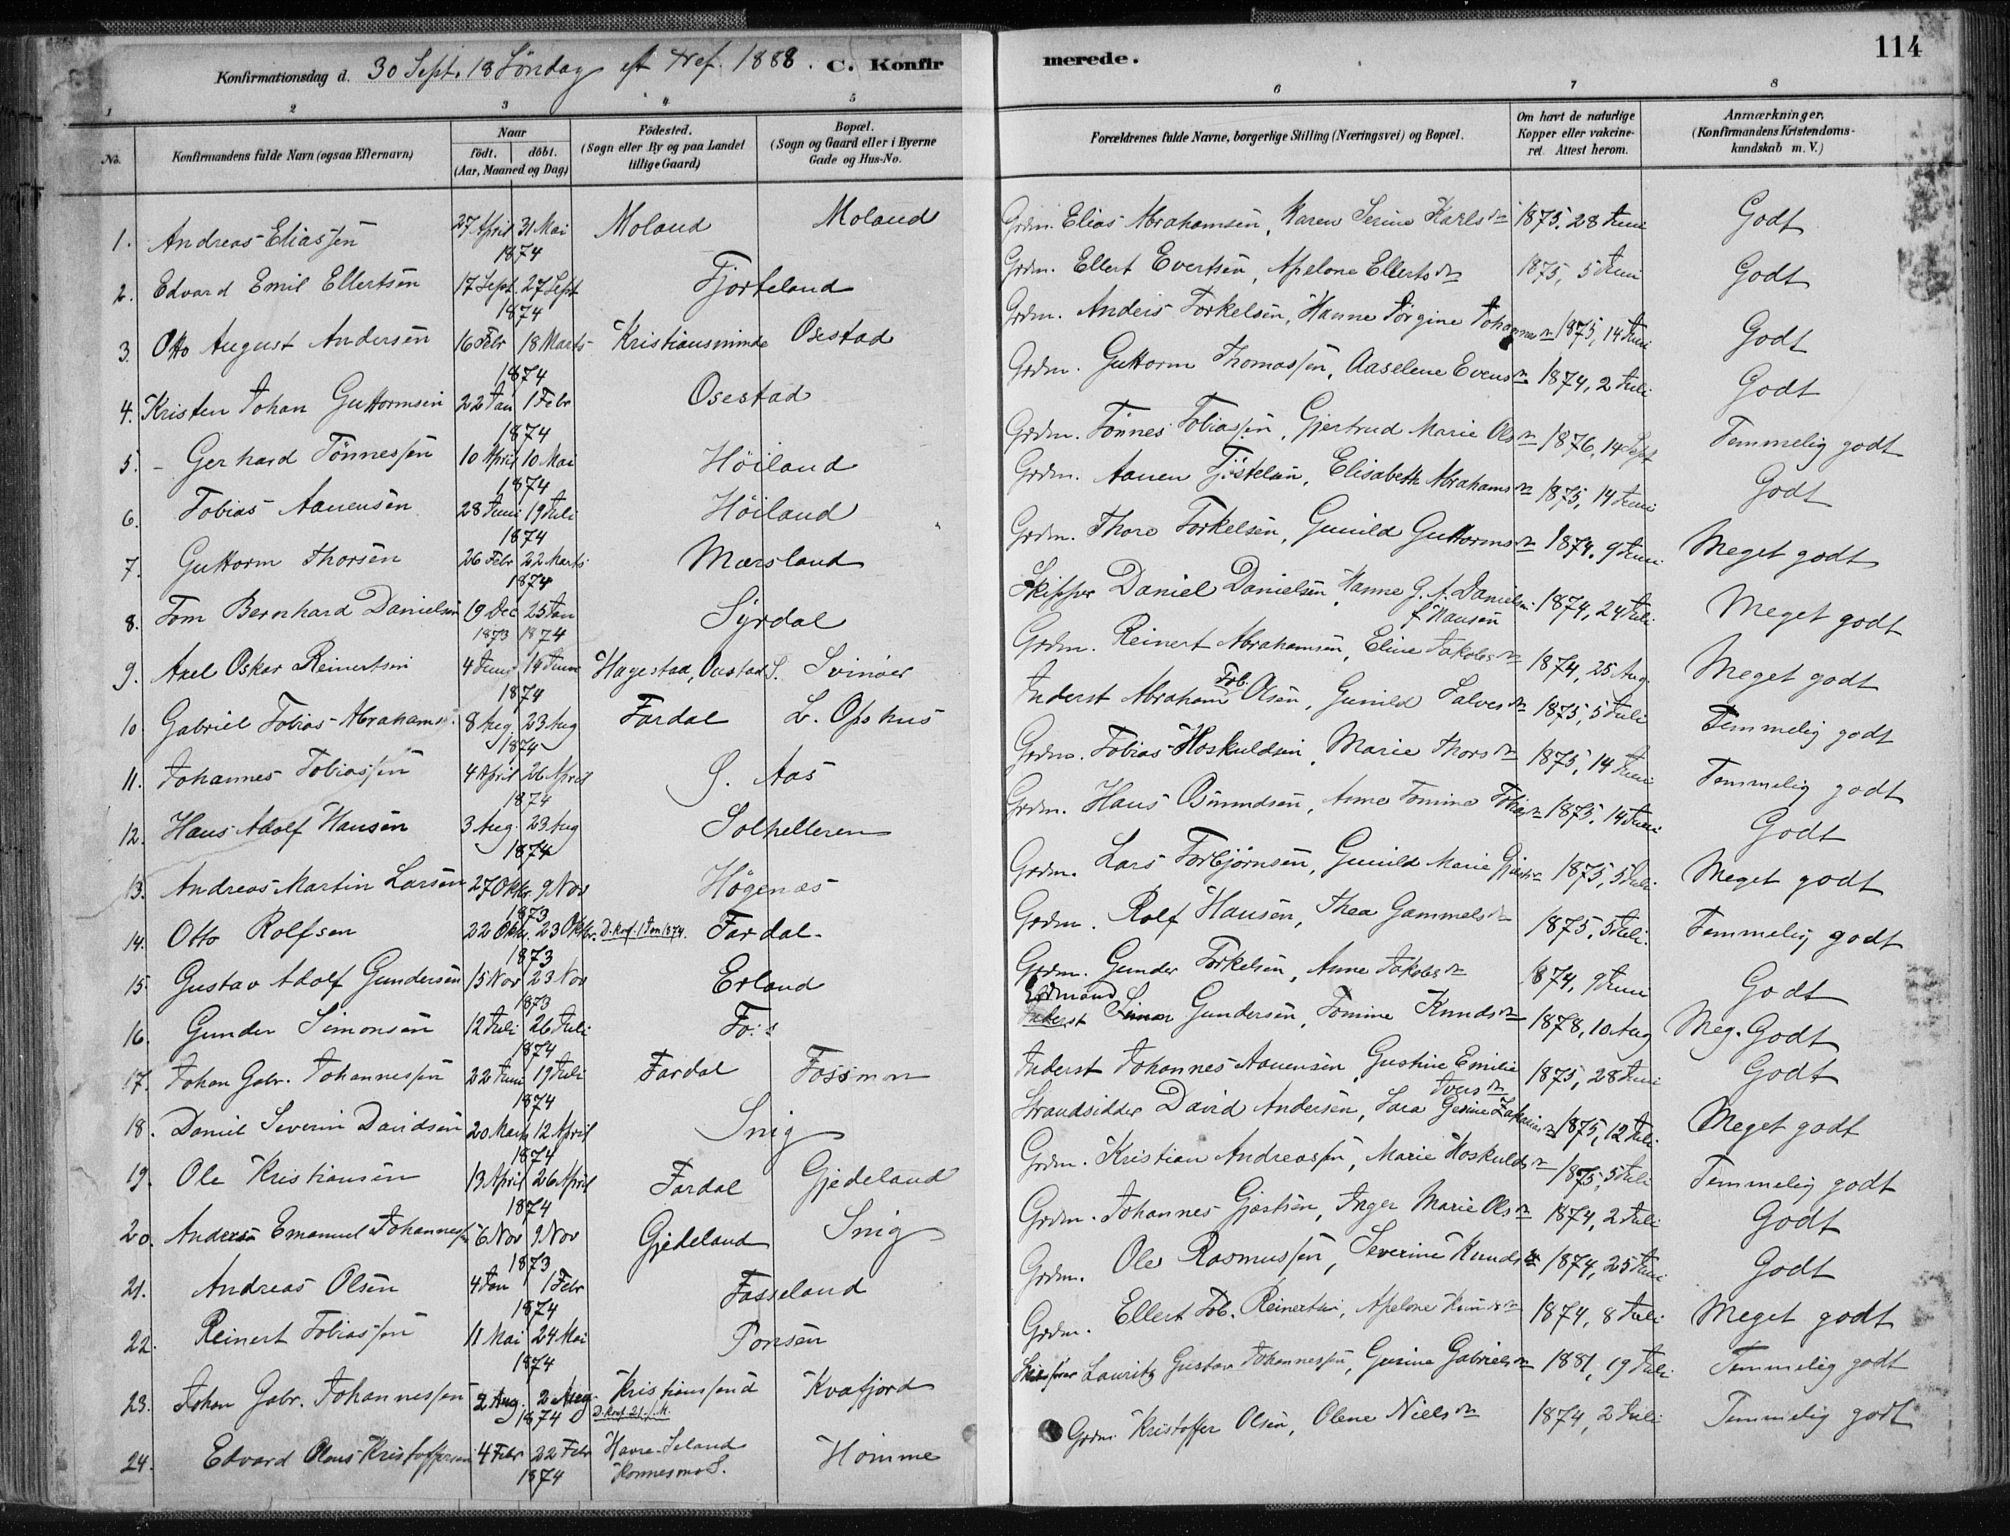 114
Konfirmationsdag d. 30 Sept. 18 Søndag eft Tref. 1888. C. Konfirmerede.
1 2 3 4 5 6 7 8
No. Konfirmandens fulde Navn (ogsaa Efternavn) Naar födt. döbt. (Aar, Maaned og Dag) Födested. (Sogn eller By og paa Landet tillige Gaard) Bopæl. (Sogn og Gaard eller i Byerne Gade og Hus-No. Forældrenes fulde Navne, borgerlige Stilling (Næringsvei) og Bopæl. Om havt de naturlige Kopper eller vakcineret. Attest herom. Anmærkninger. (Konfirmandens Kristendomskundskab m. V.)
1. Andreas Eliassen 27 April 31 Mai 1874 Moland Moland Grdm. Elias Abrahamsen, Karen Serine Karlsdn 1875, 28 Juni Godt
2. Edvard Emil Ellertsen 17 Sept. 27 Sept 1874 Fjorteland Grdm. Ellert Evertsen, Apelone Ellertsdn 1875, 5 Juni Godt
3. Otto August Andersen 16 Febr 18 Marts 1874 Kristiansminde Osestad Grdm. Anders Torkelsen, Hanne Jørgine Johannesdn 1875, 14 Juni Godt
4. Kristen Johan Guttormsen 22 Jan 1 Febr 1874 Osestad Grdm. Guttorm Thomassen, Aaselene Evensdn 1874, 2 Juli Godt
5. Gerhard Tönnessen 10 April 10 Mai 1874 Höiland Grdm. Tönnes Tobiassen, Gjertrud Marie Olsdn 1876, 14 Sept Temmelig godt
6. Tobias Aanensen 28 Juni 19 Juli 1874 Höiland Grdm. Aanen Tjöstelsen, Elisabeth Abrahamsdn 1875, 14 Juni Godt
7. Guttorm Thorsen 26 Febr 22 Marts 1874 Mærsland Grdm. Thore Torkelsen, Gunild Guttormsdn 1874, 9 Juni Meget godt
8. Tom Bernhard Danielsen 19 Dec 1873 25 Jan 1874 Syrdal Skipper Daniel Danielsen, Hanne G. A. Danielsen f. Hansen 1874, 24 Juli Meget godt
9. Axel Oskar Reinertsen 4 Juni 14 Juni 1874 Hagestad, S. Svinöer Grdm. Reinert Abrahamsen, Eline Jakobsdn 1874, 25 Aug. Meget godt
10 Gabriel Tobias Abrahams. 8 Aug. 23 Aug 1874 Fardal L. Opshus Inderst Abraham Tob. Olsen, Gunild Salvesdn 1875, 5 Juli Temmelig godt
11. Johannes Tobiassen 4 April 26 April 1874 S. Aas Grdm. Tobias Hoskuldsen, Marie Thorsdn 1875, 14 Juni Temmelig godt
12. Hans Adolf Hansen 3 Aug. 23 Aug 1874 Solhelleren Grdm. Hans Osmundsen, Anne Tomine Tobiasdn 1875, 14 Juni Godt
13. Andreas Martin Larsen 27 Oktbr. 9 Nov 1873 Högenæs Grdm. Lars Torbjörnsen, Gunild Marie 1875, 5 Juli Meget godt
14. Otto Rolfsen 22 Okt. 23 Oktbr. 1873 D. konf. 1 Jan 1874. Fardal. Grdm. Rolf Hansen, Thea Gammelsdn 1875, 5 Juli. Temmelig godt
15. Gustav Adolf Gundersen 15 Nov 23 Nov 1873 Erland Grdm. Gunder Torkelsen, Anne Jakobsdn 1874, 9 Juni Godt
16. Gunder Simonsen 12 Juli 26 Juli 1874 Inderst Gundersen, Tomine Knudsdn 1878, 10 Aug Meg. Godt
17. Johan Gabr. Johannessen 22 Juni 19 Juli 1874 Fardal Fossmon Inderst Johannes Aanensen, Gustine Emilie Iversdn 1875, 28 Juni Godt
18. Daniel Severin Davidsen 20 Marts 12 April 1874 Snig Strandsidder David Andersen, Sara Gesine Zakariasdn 1875, 12 Juli Meget godt
19. Ole Kristiansen 13 April 26 April 1874 Fardal Gjedeland Grdm. Kristian Andreassen, Marie Hoskuldsdn 1875, 5 Juli Temmelig godt
20. Anders Emanuel Johannessen 6 Nov 9 Nov 1873 Gjedeland Snig Grdm. Johannes Gjestsen, Inger Marie Olsdn 1874, 2 Juli Godt
21. Andreas Olsen 4 Jan 1 Febr 1874 Fasseland Grdm. Ole Rasmussen, Severine Knudsdn 1874, 25 Juni Godt
22. Reinert Tobiassen 11 Mai 24 Mai 1874 Ponsen Grdm. Ellert Tob. Reinertsen, Apelone 1874, 8 Juli Meget godt
23. Johan Gabr. Johannessen 2 Aug. 2 Aug. 1874 Kristianssund Kvafjord Lauritz Gustav Johannessen, Gusine Gabrielsdn 1881, 19 Juli Temmelig godt
24. Edvard Olaus Kristoffersen 4 Febr 22 Febr 1874 Havre-Seland Konnesmo S. Homme Grdm Kristoffer Olsen, Olene Nielsdn 1874, 2 Juli Temmelig godt